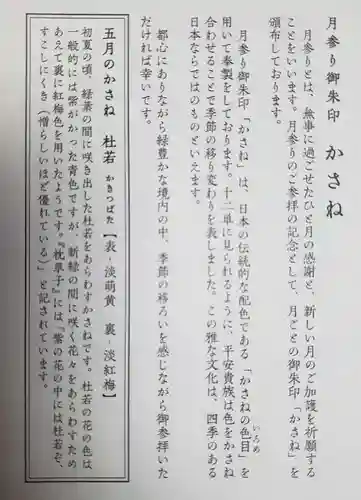 月参り御朱印 かさね
月参りとは、無事に過ごせたひと月の感謝と、新しい月のご加護を祈願する
ことをいいます。月参りのご参拝の記念として、月ごとの御朱印「かさね」を
頒布しております。
月参り御朱印「かさね」は、日本の伝統的な配色である「かさねの色目」を
いろめ
用いて奉製をしております。十二単に見られるように、平安貴族は色をかさね
合わせることで季節の移り変わりを表しました。この雅な文化は、四季のある
日本ならではのものといえます。
都心にありながら緑豊かな境内の中、季節の移ろいを感じながら御参拝いた
だければ幸いです。
五月のかさね 杜若 かきつばた【表-淡萌黄 裏-淡紅梅】
初夏の頃、緑葉の間に咲き出した杜若をあらわすかさねです。杜若の花の色は
一般的には紫がかった青色ですが、新緑の間に咲く花々をあらわすため
あえて裏に紅梅色を用いたようです。『枕草子』には『紫の花の中には杜若ぞ、
すこしにくき(憎らしいほど優れている)」と記されています。